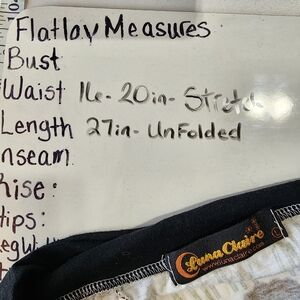 Flatlay Measures
Bust
Waist 16-20in-Stretch
Length 27in-UnFolded
nseam
Rise:
tips:
Luna Claire
www.lunaclaire.com